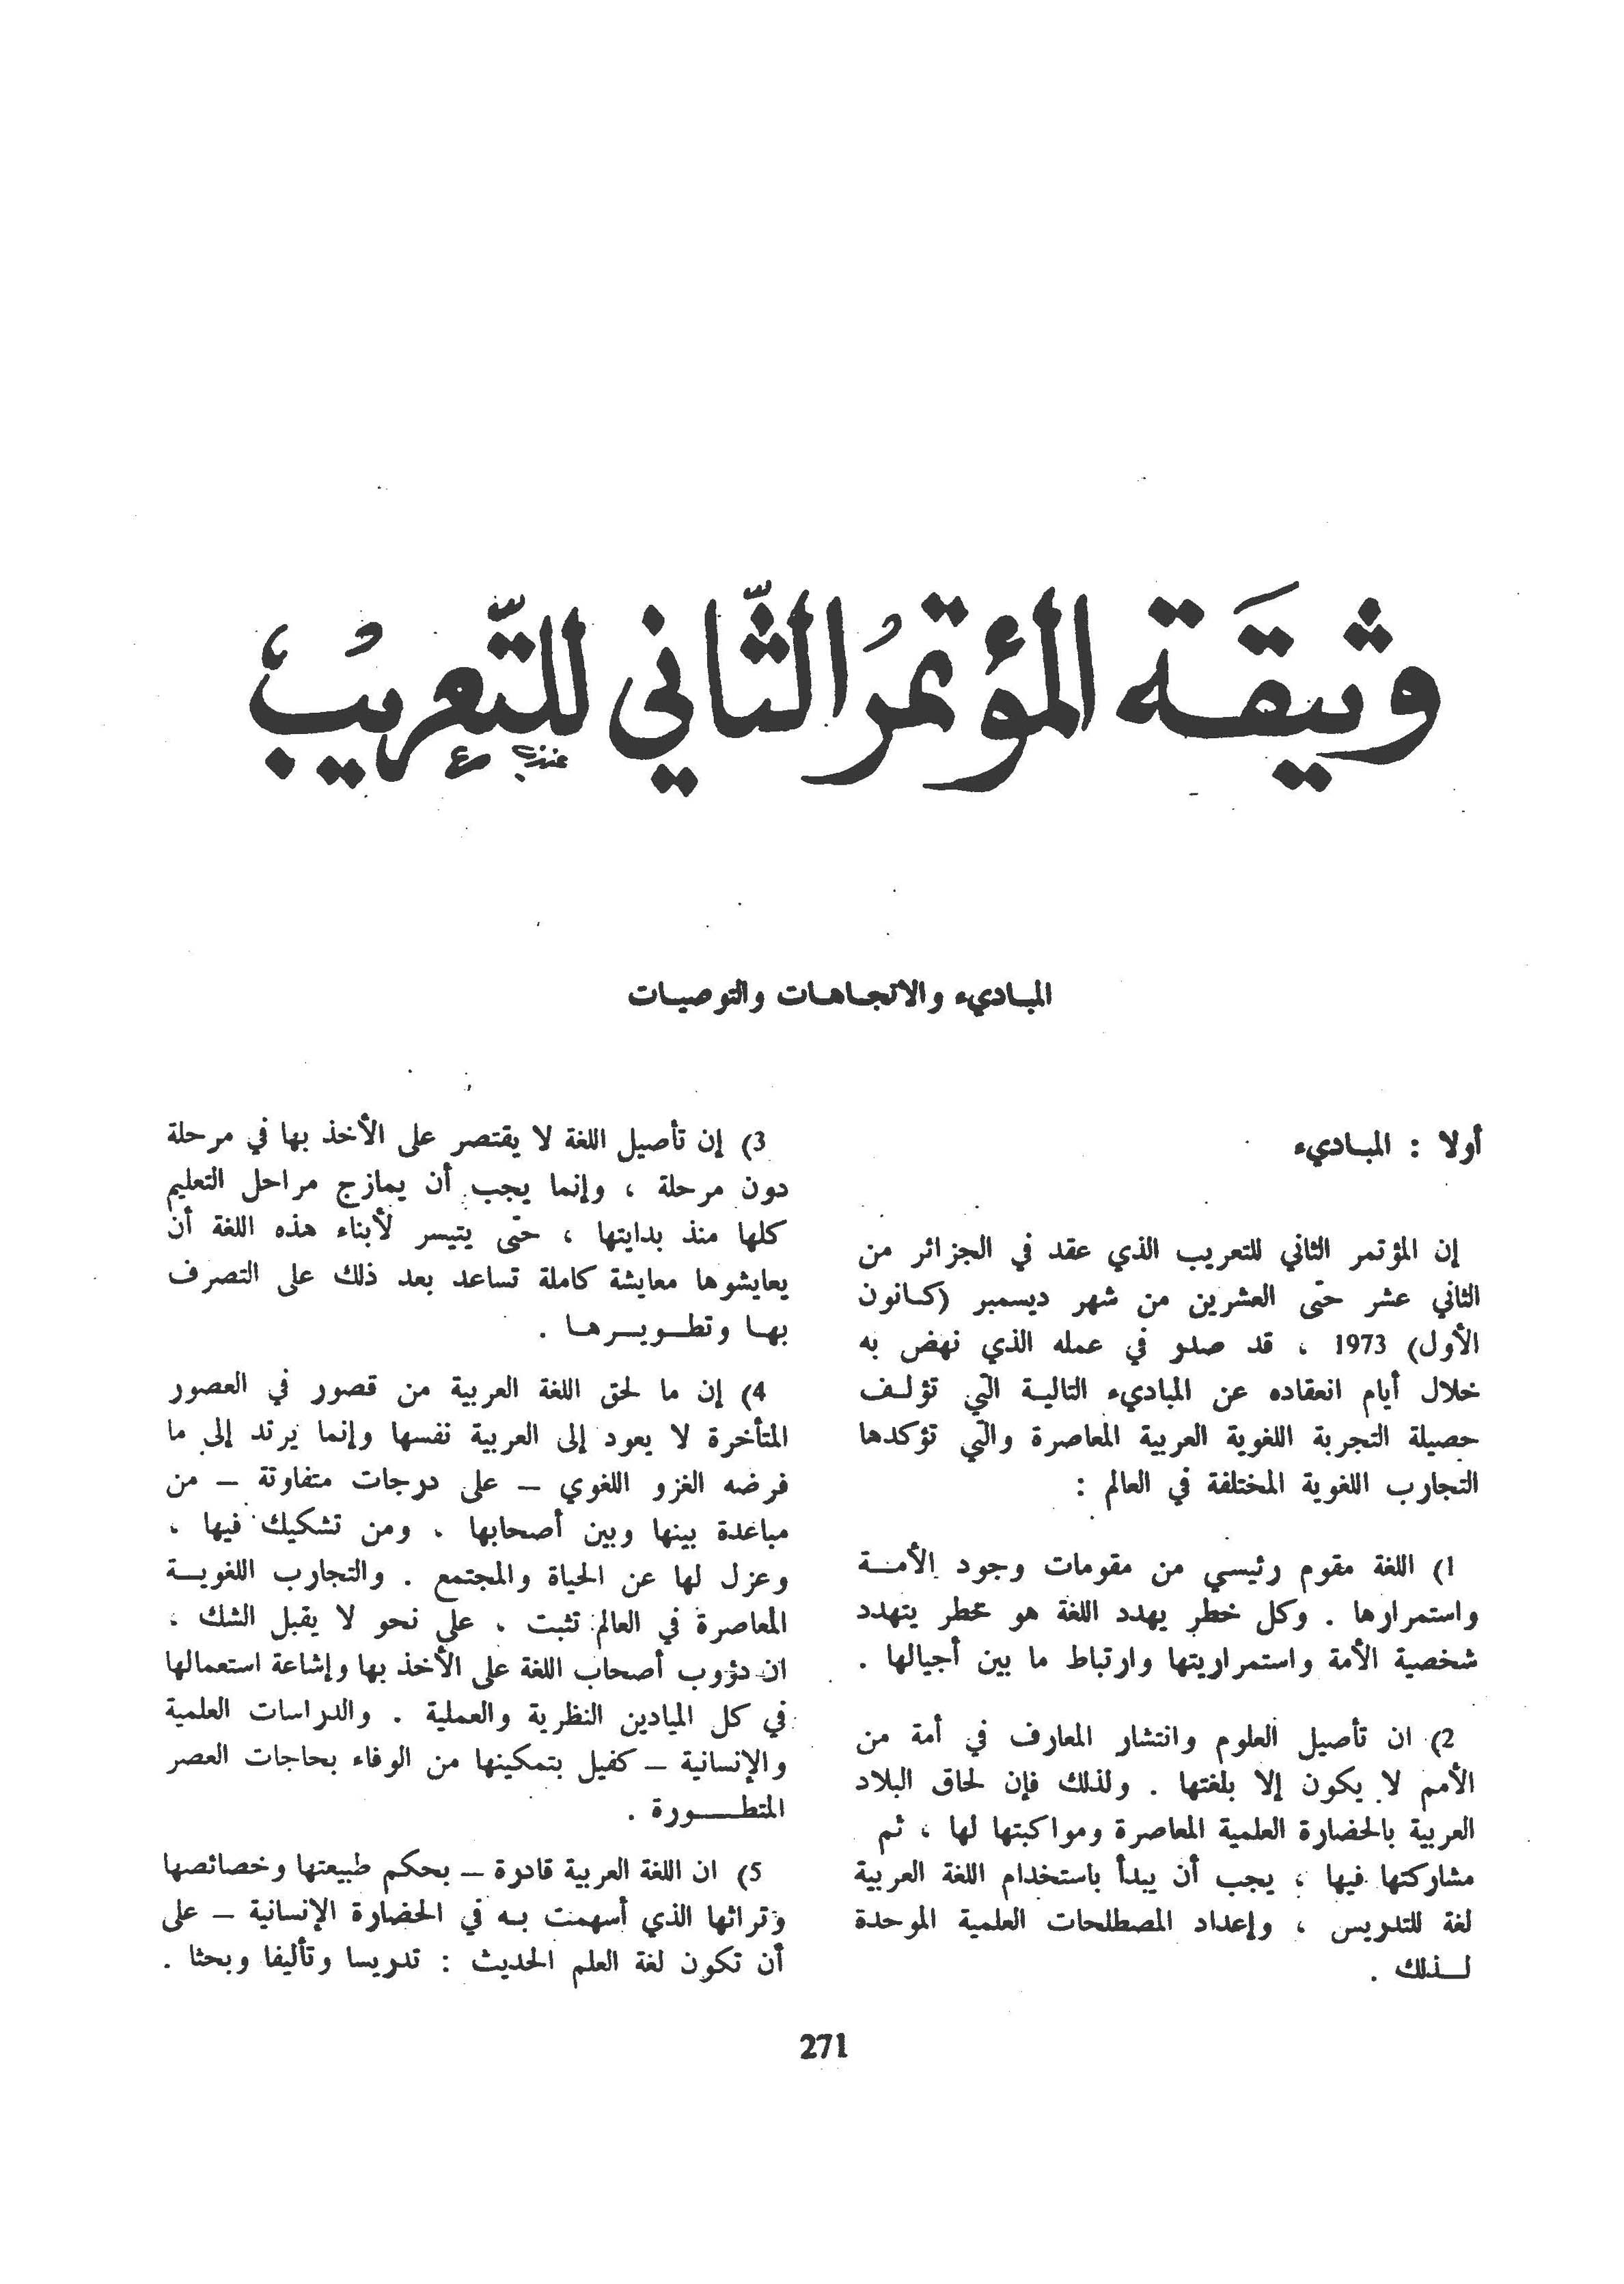 وثيقة المؤتمر الثاني للتعريب
المباديء والاتجاهات والتوصيات
أولا : المباديء
إن المؤتمر الثاني للتعريب الذي عقد في الجزائر من
الثاني عشر حتى العشرين من شهر ديسمبر (كانون
الأول) 1973 ، قد صدر في عمله الذي نهض به
خلال أيام انعقاده عن المباديء التالية التي تؤلف
حصيلة التجربة اللغوية العربية المعاصرة والتي تؤكدها
التجارب اللغوية المختلفة في العالم :
1) اللغة مقوم رئيسي من مقومات وجود الأمة
واستمرارها . وكل خطر يهدد اللغة هو خطر يتهدد
شخصية الأمة واستمراريتها وارتباط ما بين أجيالها .
2) ان تأصيل العلوم وانتشار المعارف في أمة من
الأمم لا يكون إلا بلغتها . ولذلك فإن لحاق البلاد
العربية بالحضارة العلمية المعاصرة ومواكبتها لها ، ثم
مشاركتها فيها ، يجب أن يبدأ باستخدام اللغة العربية
لغة للتدريس ، وإعداد المصطلحات العلمية الموحدة
لذلك .
3) إن تأصيل اللغة لا يقتصر على الأخذ بها في مرحلة
دون مرحلة ، وإنما يجب أن يمازج مراحل التعليم
كلها منذ بدايتها ، حتى يتيسر لأبناء هذه اللغة أن
يعايشوها معايشة كاملة تساعد بعد ذلك على التصرف
بها وتطويرها .
4) إن ما لحق اللغة العربية من قصور في العصور
المتأخرة لا يعود إلى العربية نفسها وإنما يرتد إلى ما
فرضه الغزو اللغوي – على درجات متفاوتة – من
مباعدة بينها وبين أصحابها ، ومن تشكيك فيها ،
وعزل لها عن الحياة والمجتمع . والتجارب اللغوية
المعاصرة في العالم تثبت ، على نحو لا يقبل الشك ،
ان دؤوب أصحاب اللغة على الأخذ بها وإشاعة استعمالها
في كل الميادين النظرية والعملية . والدراسات العلمية
والإنسانية – كفيل بتمكينها من الوفاء بحاجات العصر
المتطورة .
5) ان اللغة العربية قادرة – بحكم طبيعتها وخصائصها
وتراثها الذي أسهمت به في الحضارة الإنسانية – على
أن تكون لغة العلم الحديث : تدريسا وتأليفا وبحثا .
271